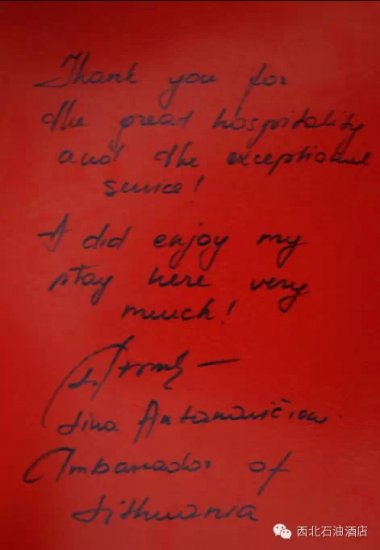 Thank you for
the great hospitality
and the exceptional
service!
I did enjoy my
stay here very
much!
Lina Antanavičienė
Ambassador of
Lithuania
西北石油酒店